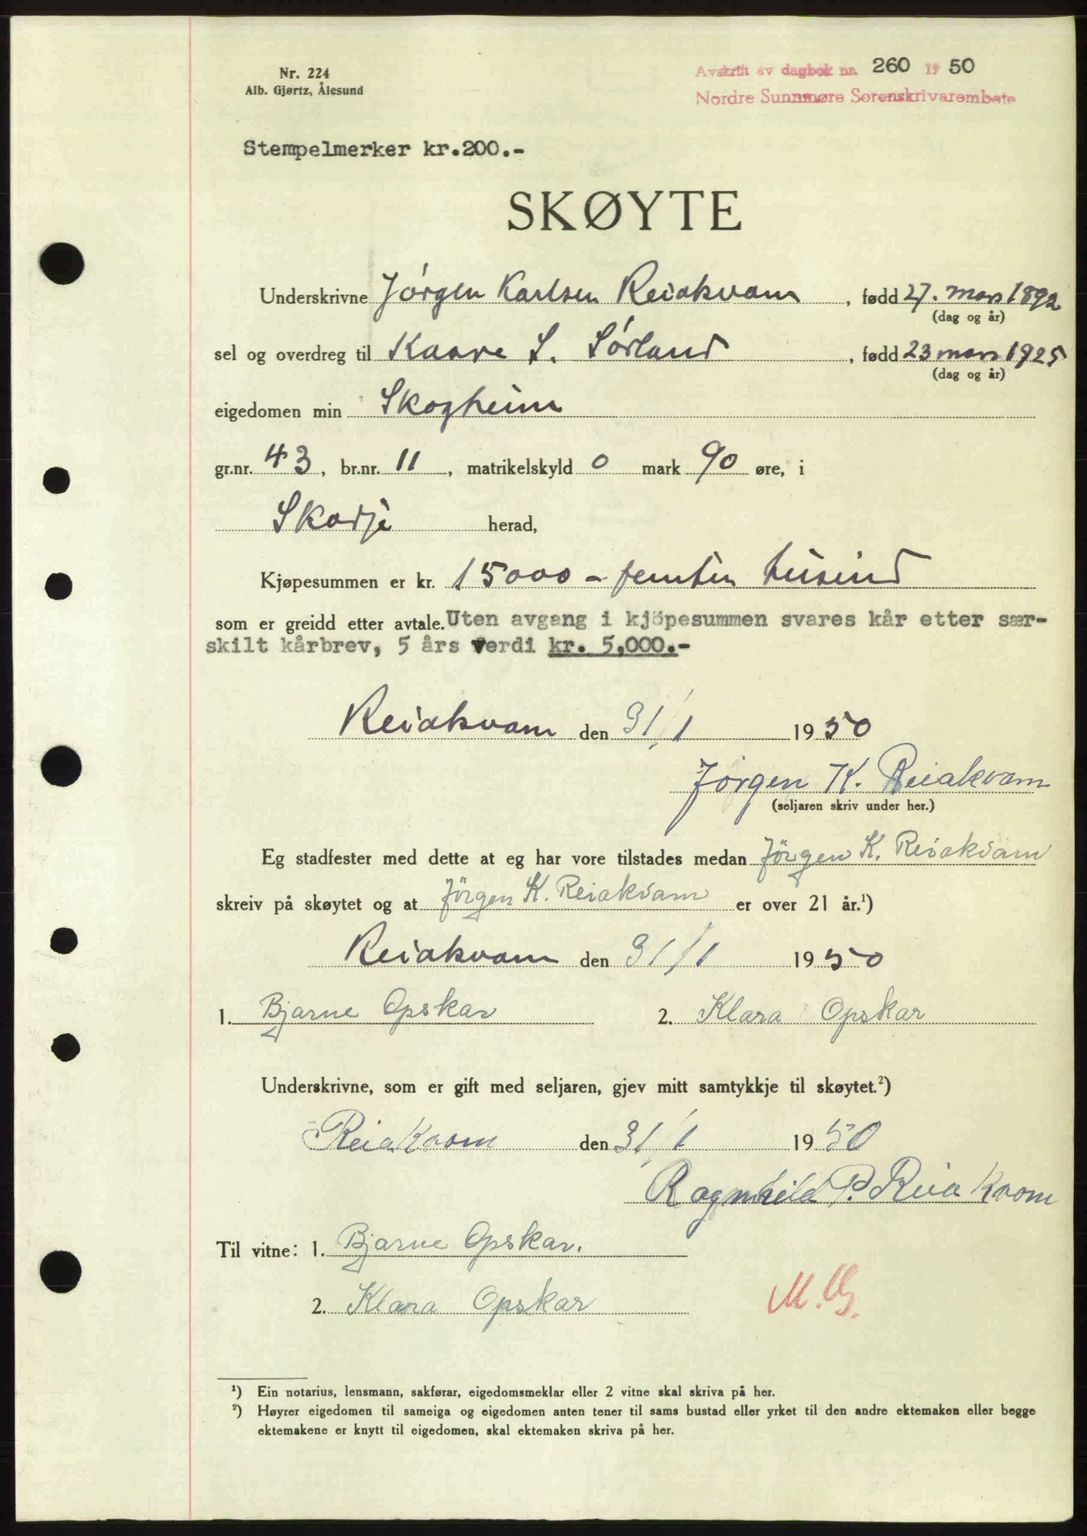 Nr. 224
Alb. Gjørtz, Ålesund
Avskrift av dagbok nr. 260 1950
Nordre Sunnmøre Sorenskrivarembete
Stempelmerker kr.200.-
SKØYTE
Underskrivne Jörgen Karlsen Reiakvam, fødd 27. mars 1892
(dag og år)
sel og overdreg til Kaare S. Sörland, fødd 23 mars 1925
(dag og år)
eigedomen min Skogheim
gr.nr. 43, br.nr. 11, matrikelskyld 0 mark 90 øre, i
Skodje herad,
Kjøpesummen er kr. 15000 - femten tusind
som er greidd etter avtale. Uten avgang i kjöpesummen svares kår etter sær-
skilt kårbrev, 5 års verdi kr. 5,000.-
Reiakvam den 31/1 1950
Jörgen K. Reiakvam
(seljaren skriv under her.)
Eg stadfester med dette at eg har vore tilstades medan Jörgen K. Reiakvam
skreiv på skøytet og at Jörgen K. Reiakvam er over 21 år.¹)
Reiakvam den 31/1 1950
1. Bjarne Opskar 2. Klara Opskar
Underskrivne, som er gift med seljaren, gjev mitt samtykkje til skøytet.²)
Reiakvam den 31/1 1950
Ragnhild P. Reiakvam
Til vitne: 1. Bjarne Opskar.
2. Klara Opskar
¹) Ein notarius, lensmann, sakførar, eigedomsmeklar eller 2 vitne skal skriva på her.
²) Høyrer eigedomen til sameiga og eigedomen anten tener til sams bustad eller yrket til den andre ektemaken eller begge
ektemakene er knytt til eigedomen, skal ektemaken skriva på her.